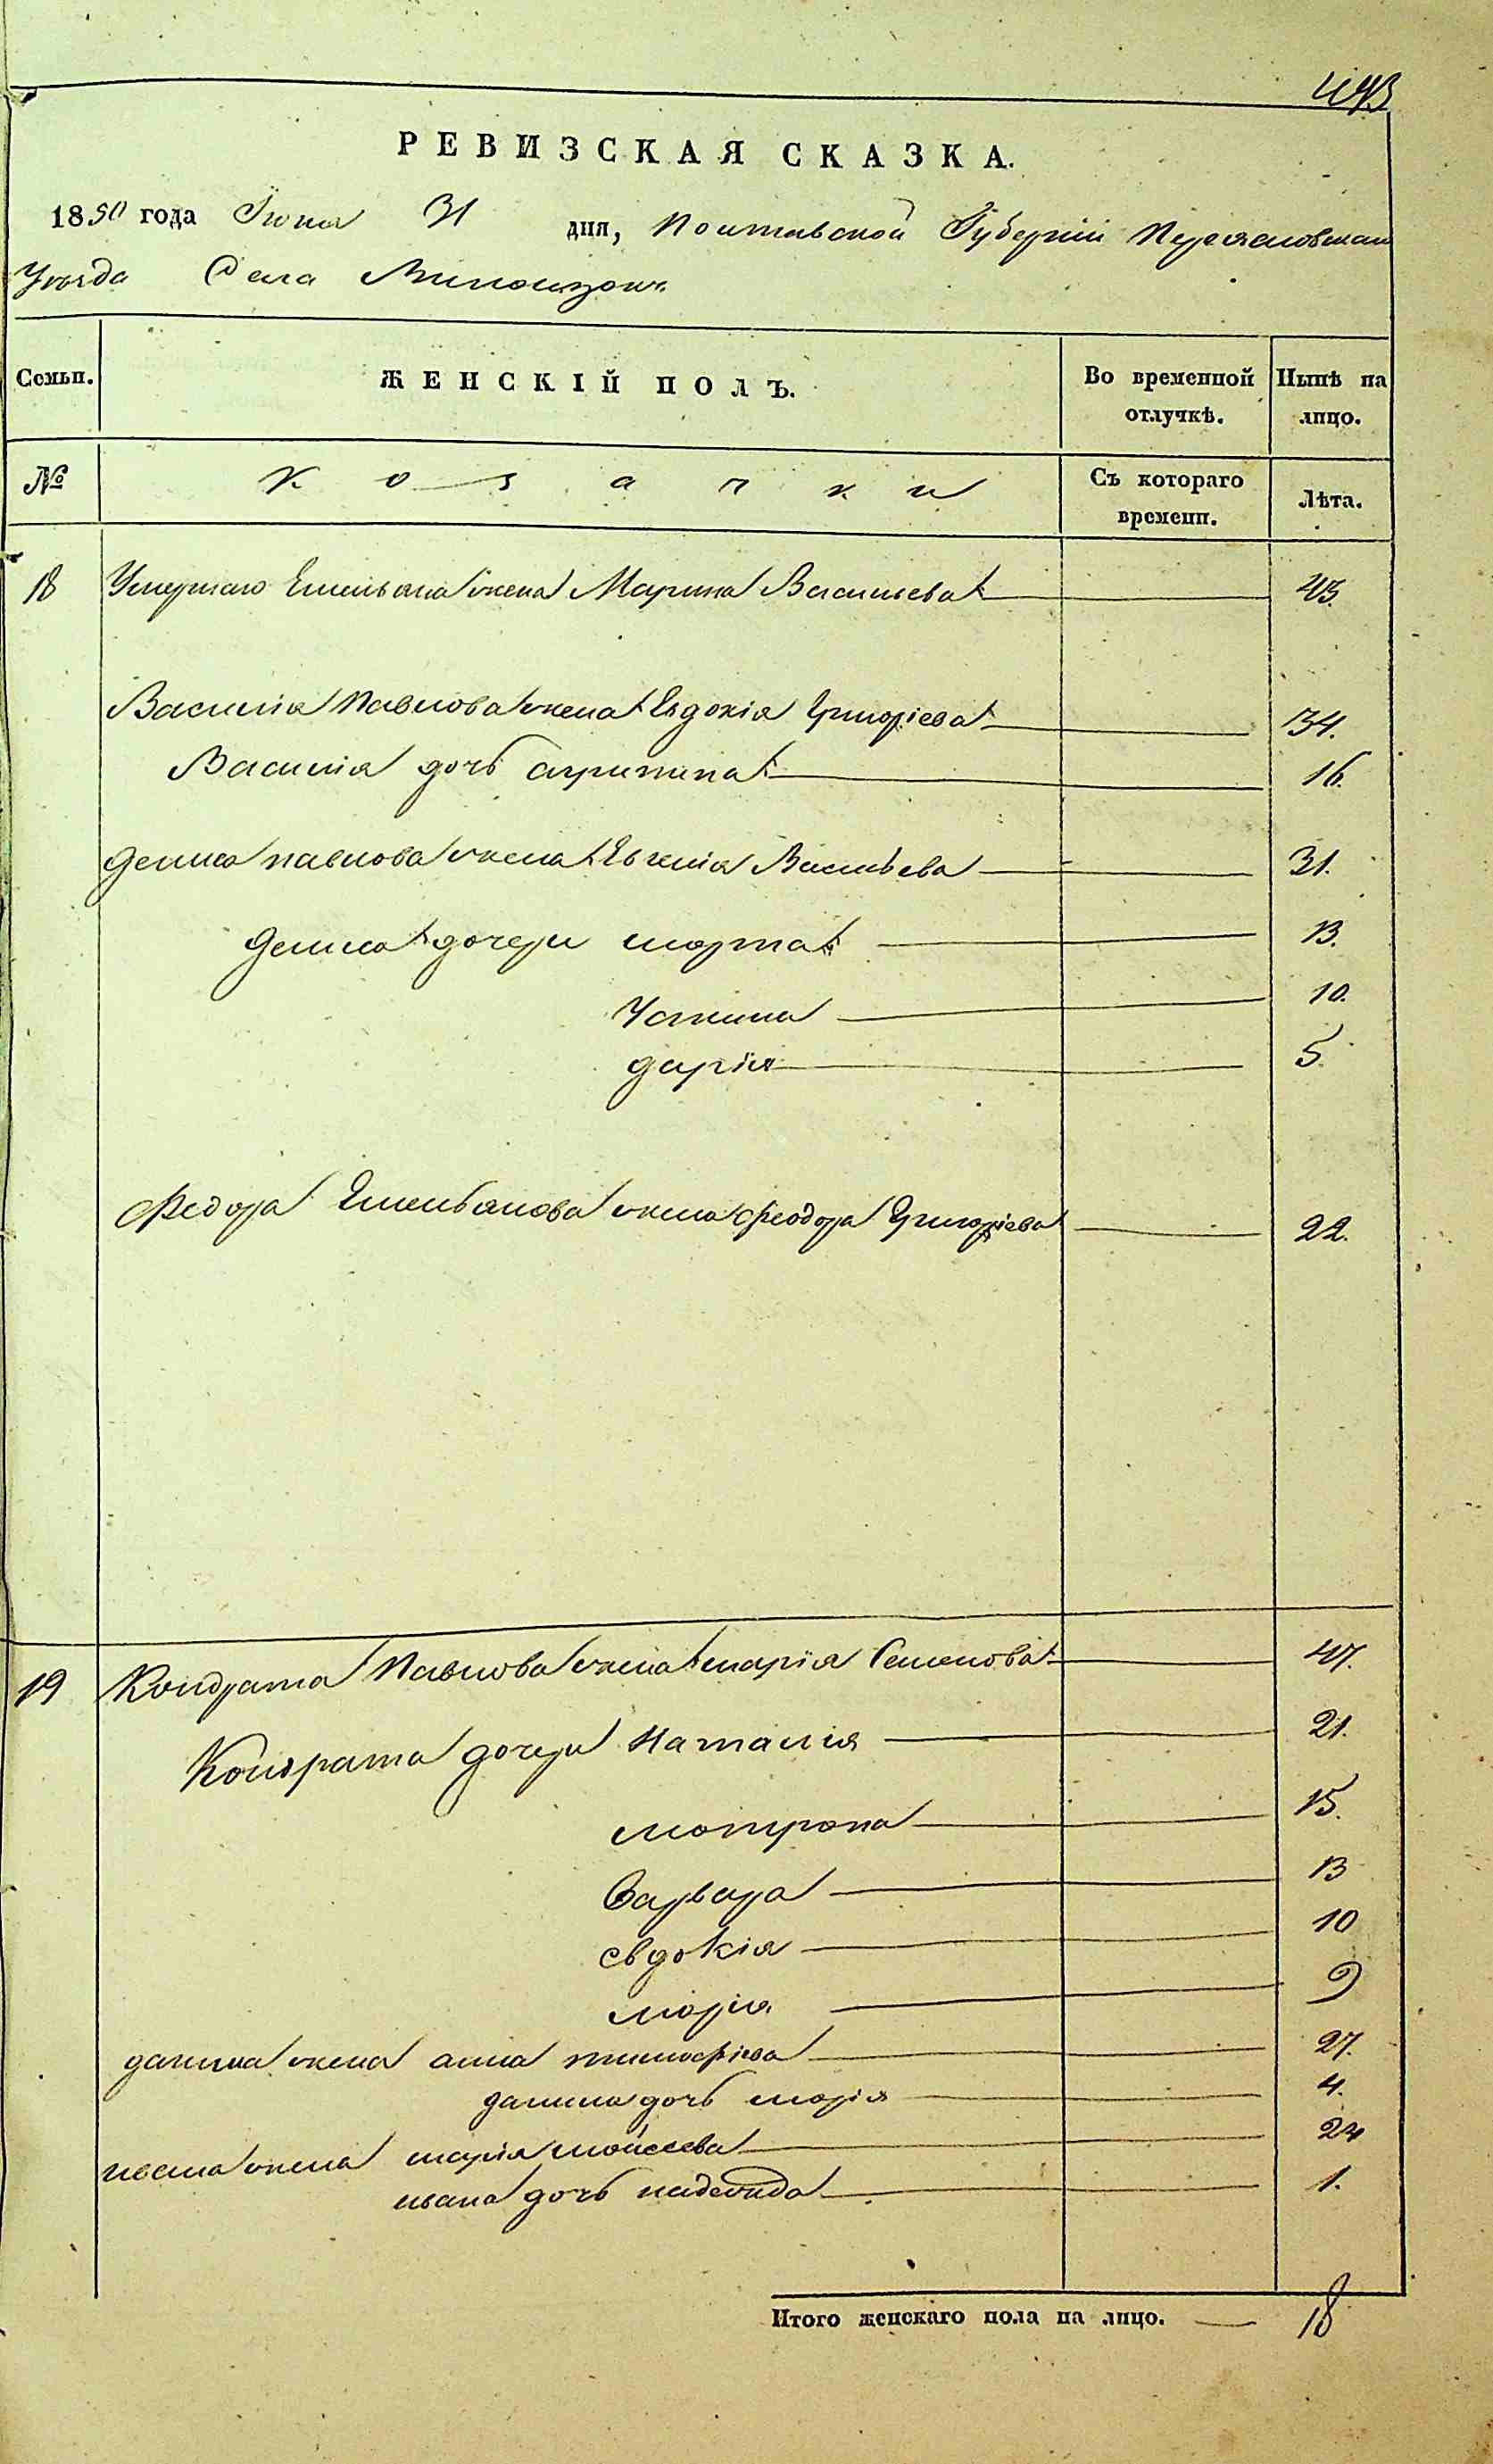 493
РЕВИЗСКАЯ СКАЗКА.
1850 года Іюня 31 дня, Полтавской Губерніи Переясловскаго
Уезда Села
Семьи. ЖЕНСКІЙ ПОЛЪ. Во временной отлучкѣ. Нынѣ на лицо.
№ Козачки Съ котораго времени. Лѣта.
18 Умершаго Емельяна жена Марина Васильева 43.
Василія Павлова жена Евдокія Григоріева 34.
Василія дочь агрипина 16.
демида павлова жена Евгенія Васильева 31.
демида дочери марта 13.
Устина 10.
дарія 5.
Федора Емельянова жена феодора Григоріева 22.
19 Кондрата Павлова жена марія Семенова 47.
Кондрата дочери Наталія 21.
мотрона 15.
Варвара 13
евдокія 10
марія 9
данила жена анна тимофіева 27.
данила дочь марія 4.
ивана жена марія моисеева 24
ивана дочь надежда 1.
Итого женскаго пола на лицо. 18